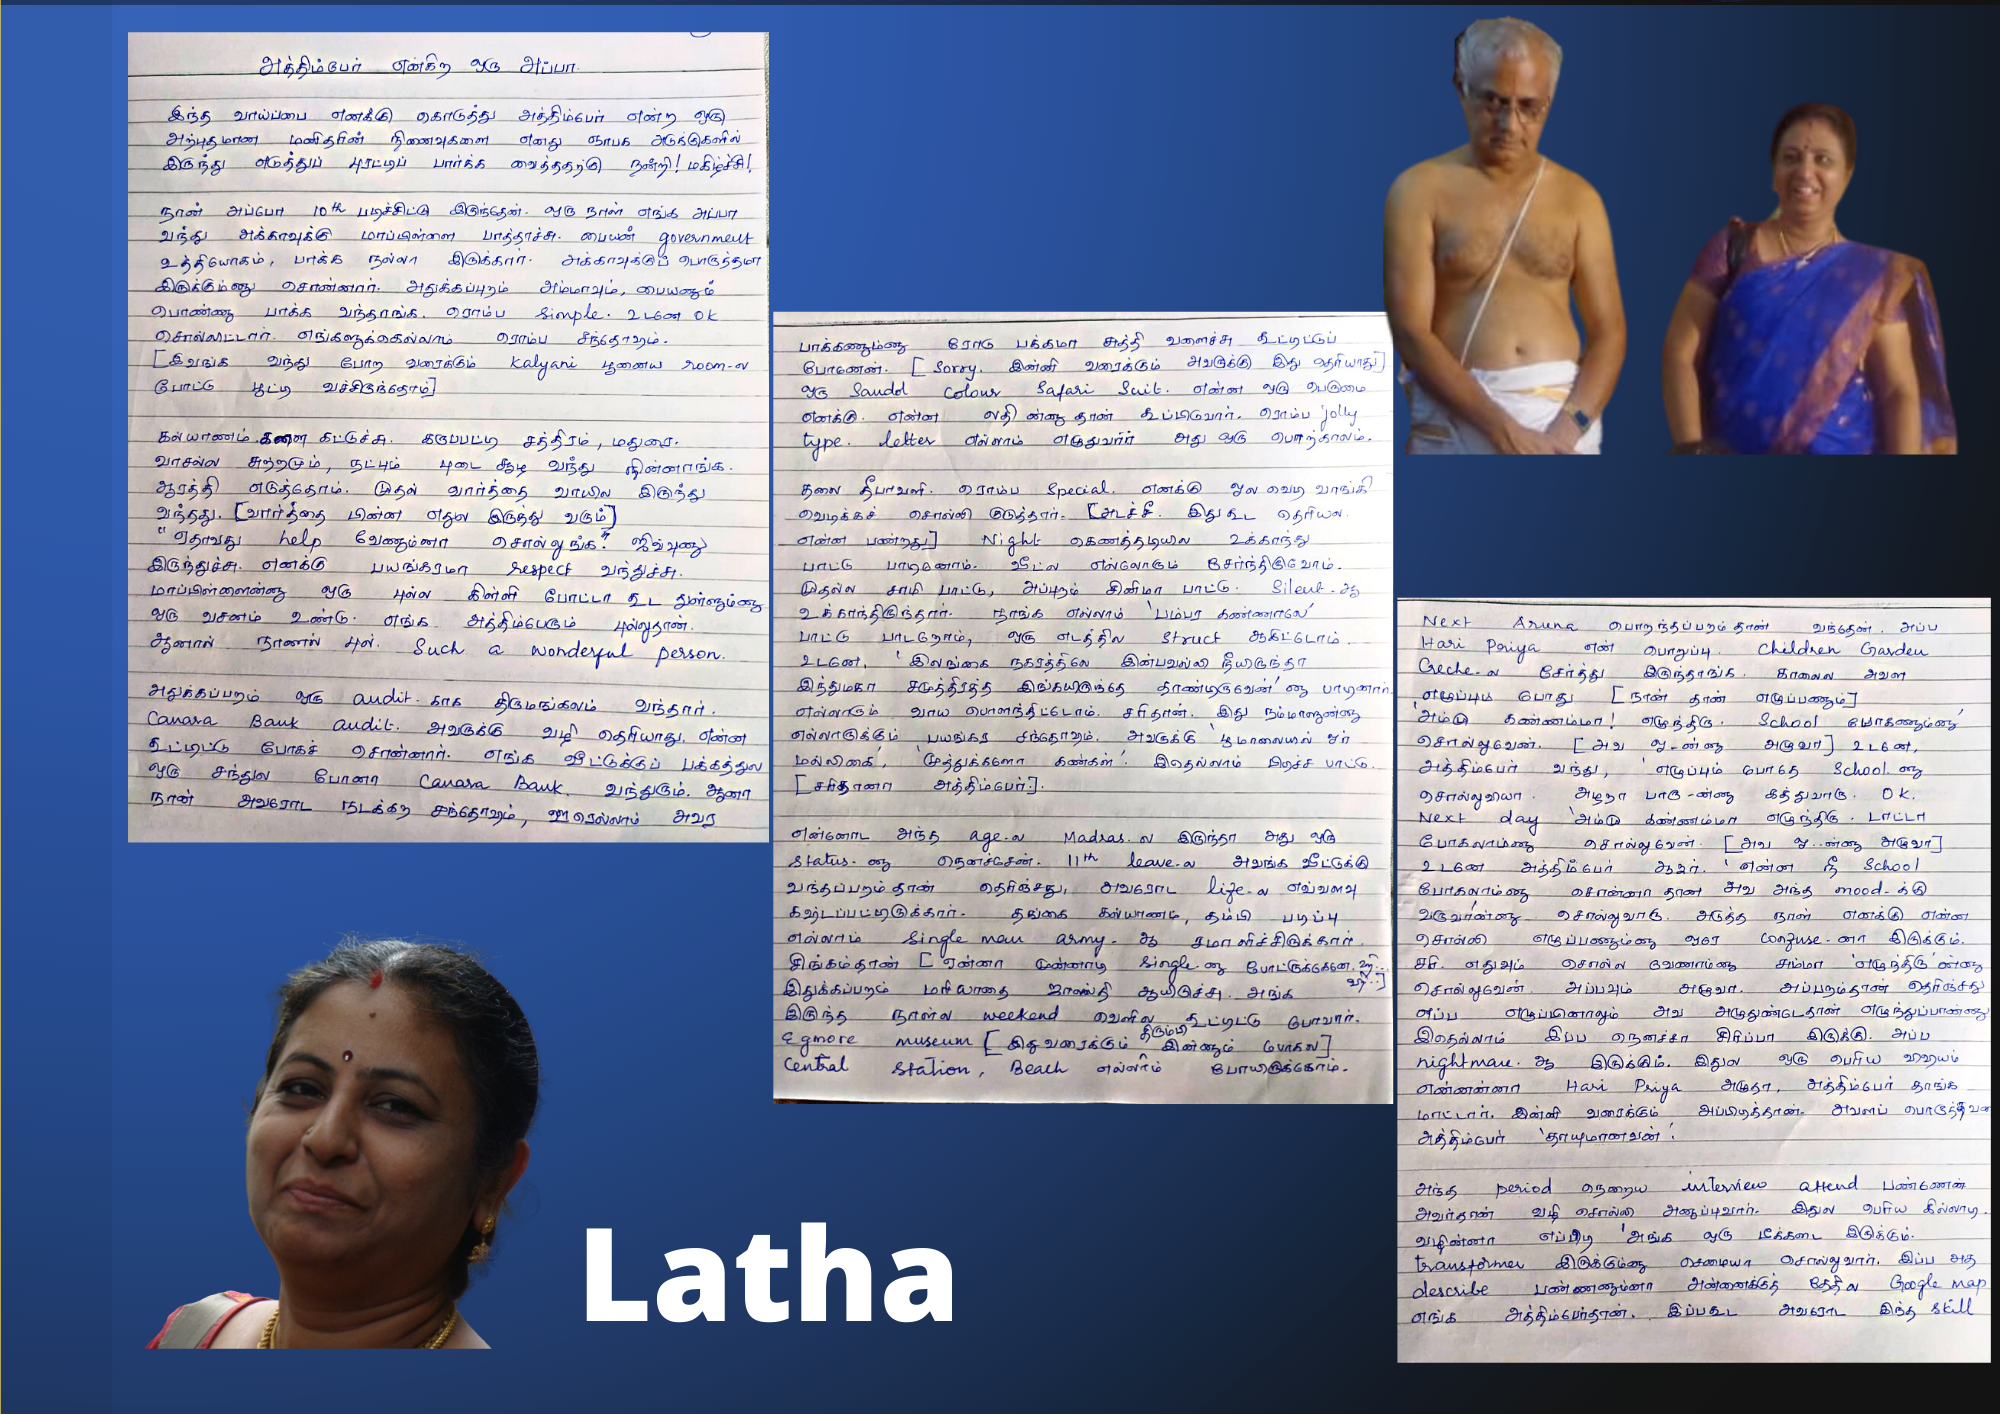 அத்திம்பேர் என்கிற ஒரு அப்பா
இந்த வாய்ப்பை எனக்கு கொடுத்து அத்திம்பேர் என்ற ஒரு
அற்புதமான மனிதரின் நினைவுகளை எனது ஞாபக அடுக்குகளில்
இருந்து எடுத்துப் புரட்டிப் பார்க்க வைத்ததற்கு நன்றி! மகிழ்ச்சி!
நான் அப்போ 10th படிச்சிட்டு இருந்தேன். ஒரு நாள் எங்க அப்பா
வந்து அக்காவுக்கு மாப்பிள்ளை பாத்தாச்சு. பையன் government
உத்தியோகம், பாக்க நல்லா இருக்கார். அக்காவுக்குப் பொருத்தமா
இருக்கும்னு சொன்னார். அதுக்கப்புறம் அம்மாவும், பையனும்
பொண்ணு பாக்க வந்தாங்க. ரொம்ப Simple. உடனே OK
சொல்லிட்டார். எங்களுக்கெல்லாம் ரொம்ப சந்தோஷம்.
[இவங்க வந்து போற வரைக்கும் Kalyani பூனைய room-ல
போட்டு பூட்டி வச்சிருந்தோம்]
கல்யாணம் களை கட்டுச்சு. கருப்பட்டி சத்திரம், மதுரை.
வாசல்ல சுற்றமும், நட்பும் புடை சூழ வந்து நின்னாங்க.
ஆரத்தி எடுத்தோம். முதல் வார்த்தை வாயில இருந்து
வந்தது. [வார்த்தை பின்ன எதுல இருந்து வரும்]
"ஏதாவது help வேணும்னா சொல்லுங்க." ஜிவ்வுனு
இருந்துச்சு. எனக்கு பயங்கரமா respect வந்துச்சு.
மாப்பிள்ளைன்னு ஒரு புல்ல கிள்ளி போட்டா கூட துள்ளும்னு
ஒரு வசனம் உண்டு. எங்க அத்திம்பேரும் புல்லுதான்.
ஆனால் நாணல் புல். Such a wonderful person.
அதுக்கப்பறம் ஒரு audit-காக திருமங்கலம் வந்தார்.
Canara Bank audit. அவருக்கு வழி தெரியாது. என்ன
கூட்டிட்டு போகச் சொன்னார். எங்க வீட்டுக்குப் பக்கத்துல
ஒரு சந்துல போனா Canara Bank வந்துரும். ஆனா
நான் அவரோட நடக்கற சந்தோஷம், ஊரெல்லாம் அவர
பாக்கணும்னு ரோடு பக்கமா சுத்தி வளைச்சு கூட்டிட்டுப்
போனேன். [Sorry. இன்னி வரைக்கும் அவருக்கு இது தெரியாது]
ஒரு Sandal Colour Safari Suit. என்ன ஒரு பெருமை
எனக்கு. என்ன லதி ன்னு தான் கூப்பிடுவார். ரொம்ப jolly
type. letter எல்லாம் எழுதுவார் அது ஒரு பொற்காலம்.
தலை தீபாவளி. ரொம்ப Special. எனக்கு ஓல வெடி வாங்கி
வெடிக்கச் சொல்லி குடுத்தார். [அடச்சீ. இது கூட தெரியல.
என்ன பண்றது] Night கெணத்தடியில உக்காந்து
பாட்டு பாடினோம். வீட்ல எல்லோரும் சேர்ந்திருவோம்.
முதல்ல சாமி பாட்டு, அப்புறம் சினிமா பாட்டு. Silent-ஆ
உக்காந்திருந்தார். நாங்க எல்லாம் 'பம்பர கண்ணாலே'
பாட்டு பாடறோம், ஒரு எடத்தில struct ஆகிட்டோம்.
உடனே, 'இலங்கை நகரத்திலே இன்பவல்லி நீயிருந்தா
இந்துமகா சமுத்திரத்த இங்கயிருந்தே தாண்டிருவேன்' னு பாடினார்.
எல்லாரும் வாய பொளந்திட்டோம். சரிதான். இது நம்மாளுன்னு
எல்லாருக்கும் பயங்கர சந்தோஷம். அவருக்கு 'பூமாலையில் ஓர்
மல்லிகை', 'முத்துக்களோ கண்கள்'. இதெல்லாம் பிடிச்ச பாட்டு.
[சரிதானா அத்திம்பேர்?].
என்னோட அந்த age-ல Madras-ல இருந்தா அது ஒரு
status-னு நெனச்சேன். 11th leave-ல அவங்க வீட்டுக்கு
வந்தப்பறம் தான் தெரிஞ்சது, அவரோட life-ல எவ்வளவு
கஷ்டப்பட்டிருக்கார். தங்கை கல்யாணம், தம்பி படிப்பு
எல்லாம் single man army-ஆ சமாளிச்சிருக்கார்.
சிங்கம்தான் [ஏன்னா முன்னாடி single-னு போட்டுருக்கேனே. ஹி...
ஹி...]
இதுக்கப்பறம் மரியாதை ஜாஸ்தி ஆயிடுச்சு. அங்க
இருந்த நாள்ல weekend வெளில கூட்டிட்டு போவார்.
Egmore museum [இதுவரைக்கும் திரும்பி இன்னும் போகல]
Central Station, Beach எல்லாம் போயிருக்கோம்.
Next Aruna பொறந்தப்பறம் தான் வந்தேன். அப்ப
Hari Priya என் பொறுப்பு. Children Garden
Creche-ல சேர்த்து இருந்தாங்க. காலைல அவள
எழுப்பும் போது [நான் தான் எழுப்பணும்]
'அம்மு கண்ணம்மா! எழுந்திரு. School போகணும்னு'
சொல்லுவேன். [அவ ஓ-ன்னு அழுவா] உடனே,
அத்திம்பேர் வந்து, 'எழுப்பும் போதே School-னு
சொல்லுவியா. அழறா பாரு-ன்னு கத்துவாரு. OK.
Next day 'அம்மு கண்ணம்மா எழுந்திரு. டாட்டா
போகலாம்னு சொல்லுவேன். [அவ ஓ..ன்னு அழுவா]
உடனே அத்திம்பேர் ஆஜர். 'என்ன நீ School
போகலாம்னு சொன்னா தான அவ அந்த mood-க்கு
வருவான்னு சொல்லுவாரு. அடுத்த நாள் எனக்கு என்ன
சொல்லி எழுப்பணும்னு ஒரே confuse-னா இருக்கும்.
சரி. எதுவும் சொல்ல வேணாம்னு சும்மா 'எழுந்திரு'ன்னு
சொல்லுவேன். அப்பவும் அழுவா. அப்பறம்தான் தெரிஞ்சது
எப்ப எழுப்பினாலும் அவ அழுதுண்டேதான் எழுந்துப்பான்னு
இதெல்லாம் இப்ப நெனச்சா சிரிப்பா இருக்கு. அப்ப
nightmare-ஆ இருக்கும். இதுல ஒரு பெரிய விஷயம்
என்னன்னா Hari Priya அழுதா, அத்திம்பேர் தாங்க
மாட்டார். இன்னி வரைக்கும் அப்பிடித்தான். அவளப் பொருத்தவரை
அத்திம்பேர் 'தாயுமானவன்'.
அந்த period நெறைய interview attend பண்ணேன்
அவர்தான் வழி சொல்லி அனுப்புவார். இதுல பெரிய கில்லாடி.
வழின்னா எப்பிடி 'அங்க ஒரு டீக்கடை இருக்கும்.
transformer இருக்கும்னு செமையா சொல்லுவார். இப்ப அத
describe பண்ணணும்னா அன்னைக்குத் தேதில Google map
எங்க அத்திம்பேர்தான். இப்பகூட அவரோட இந்த skill
Latha